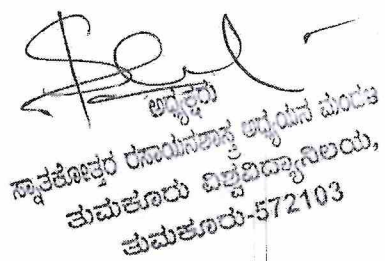 ಅಧ್ಯಕ್ಷರು
ಸ್ನಾತಕೋತ್ತರ ರಸಾಯನಶಾಸ್ತ್ರ ಅಧ್ಯಯನ ಮಂಡಳಿ
ತುಮಕೂರು ವಿಶ್ವವಿದ್ಯಾನಿಲಯ,
ತುಮಕೂರು-572103